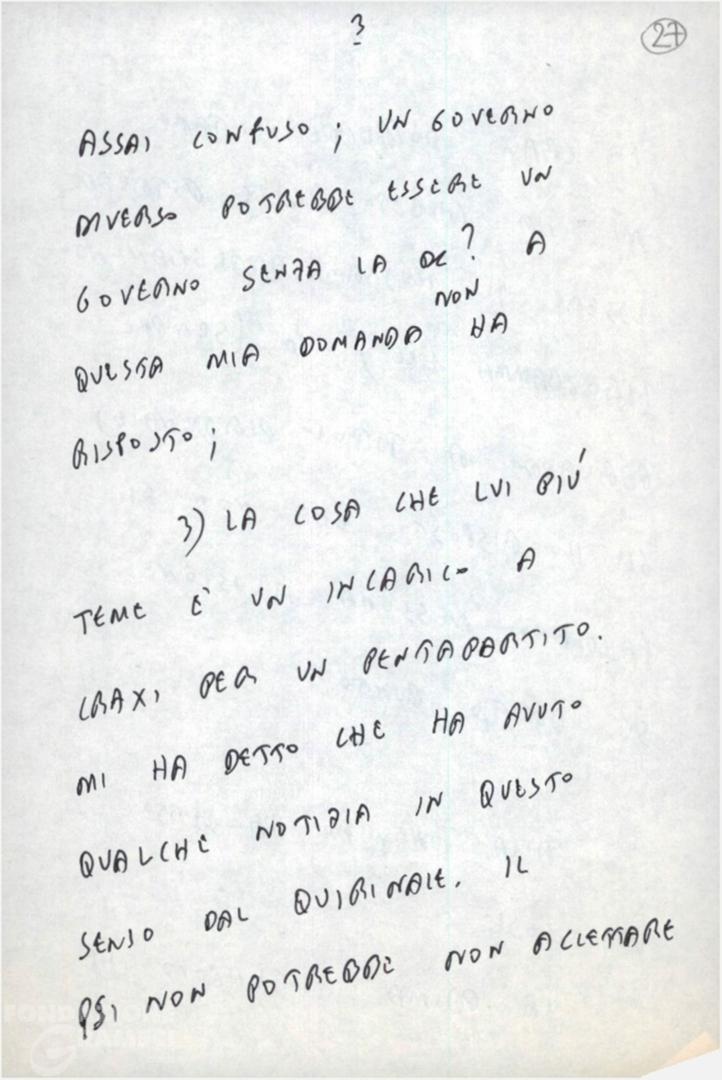 3
27
ASSAI CONFUSO; UN GOVERNO
DIVERSO POTREBBE ESSERE UN
GOVERNO SENZA LA DC? A
QUESTA MIA DOMANDA NON HA
RISPOSTO;
3) LA COSA CHE LUI PIÚ
TEME E' UN INCARICO A
CRAXI PER UN PENTAPARTITO.
MI HA DETTO CHE HA AVUTO
QUALCHE NOTIZIA IN QUESTO
SENSO DAL QUIRINALE. IL
PSI NON POTREBBE NON ACCETTARE